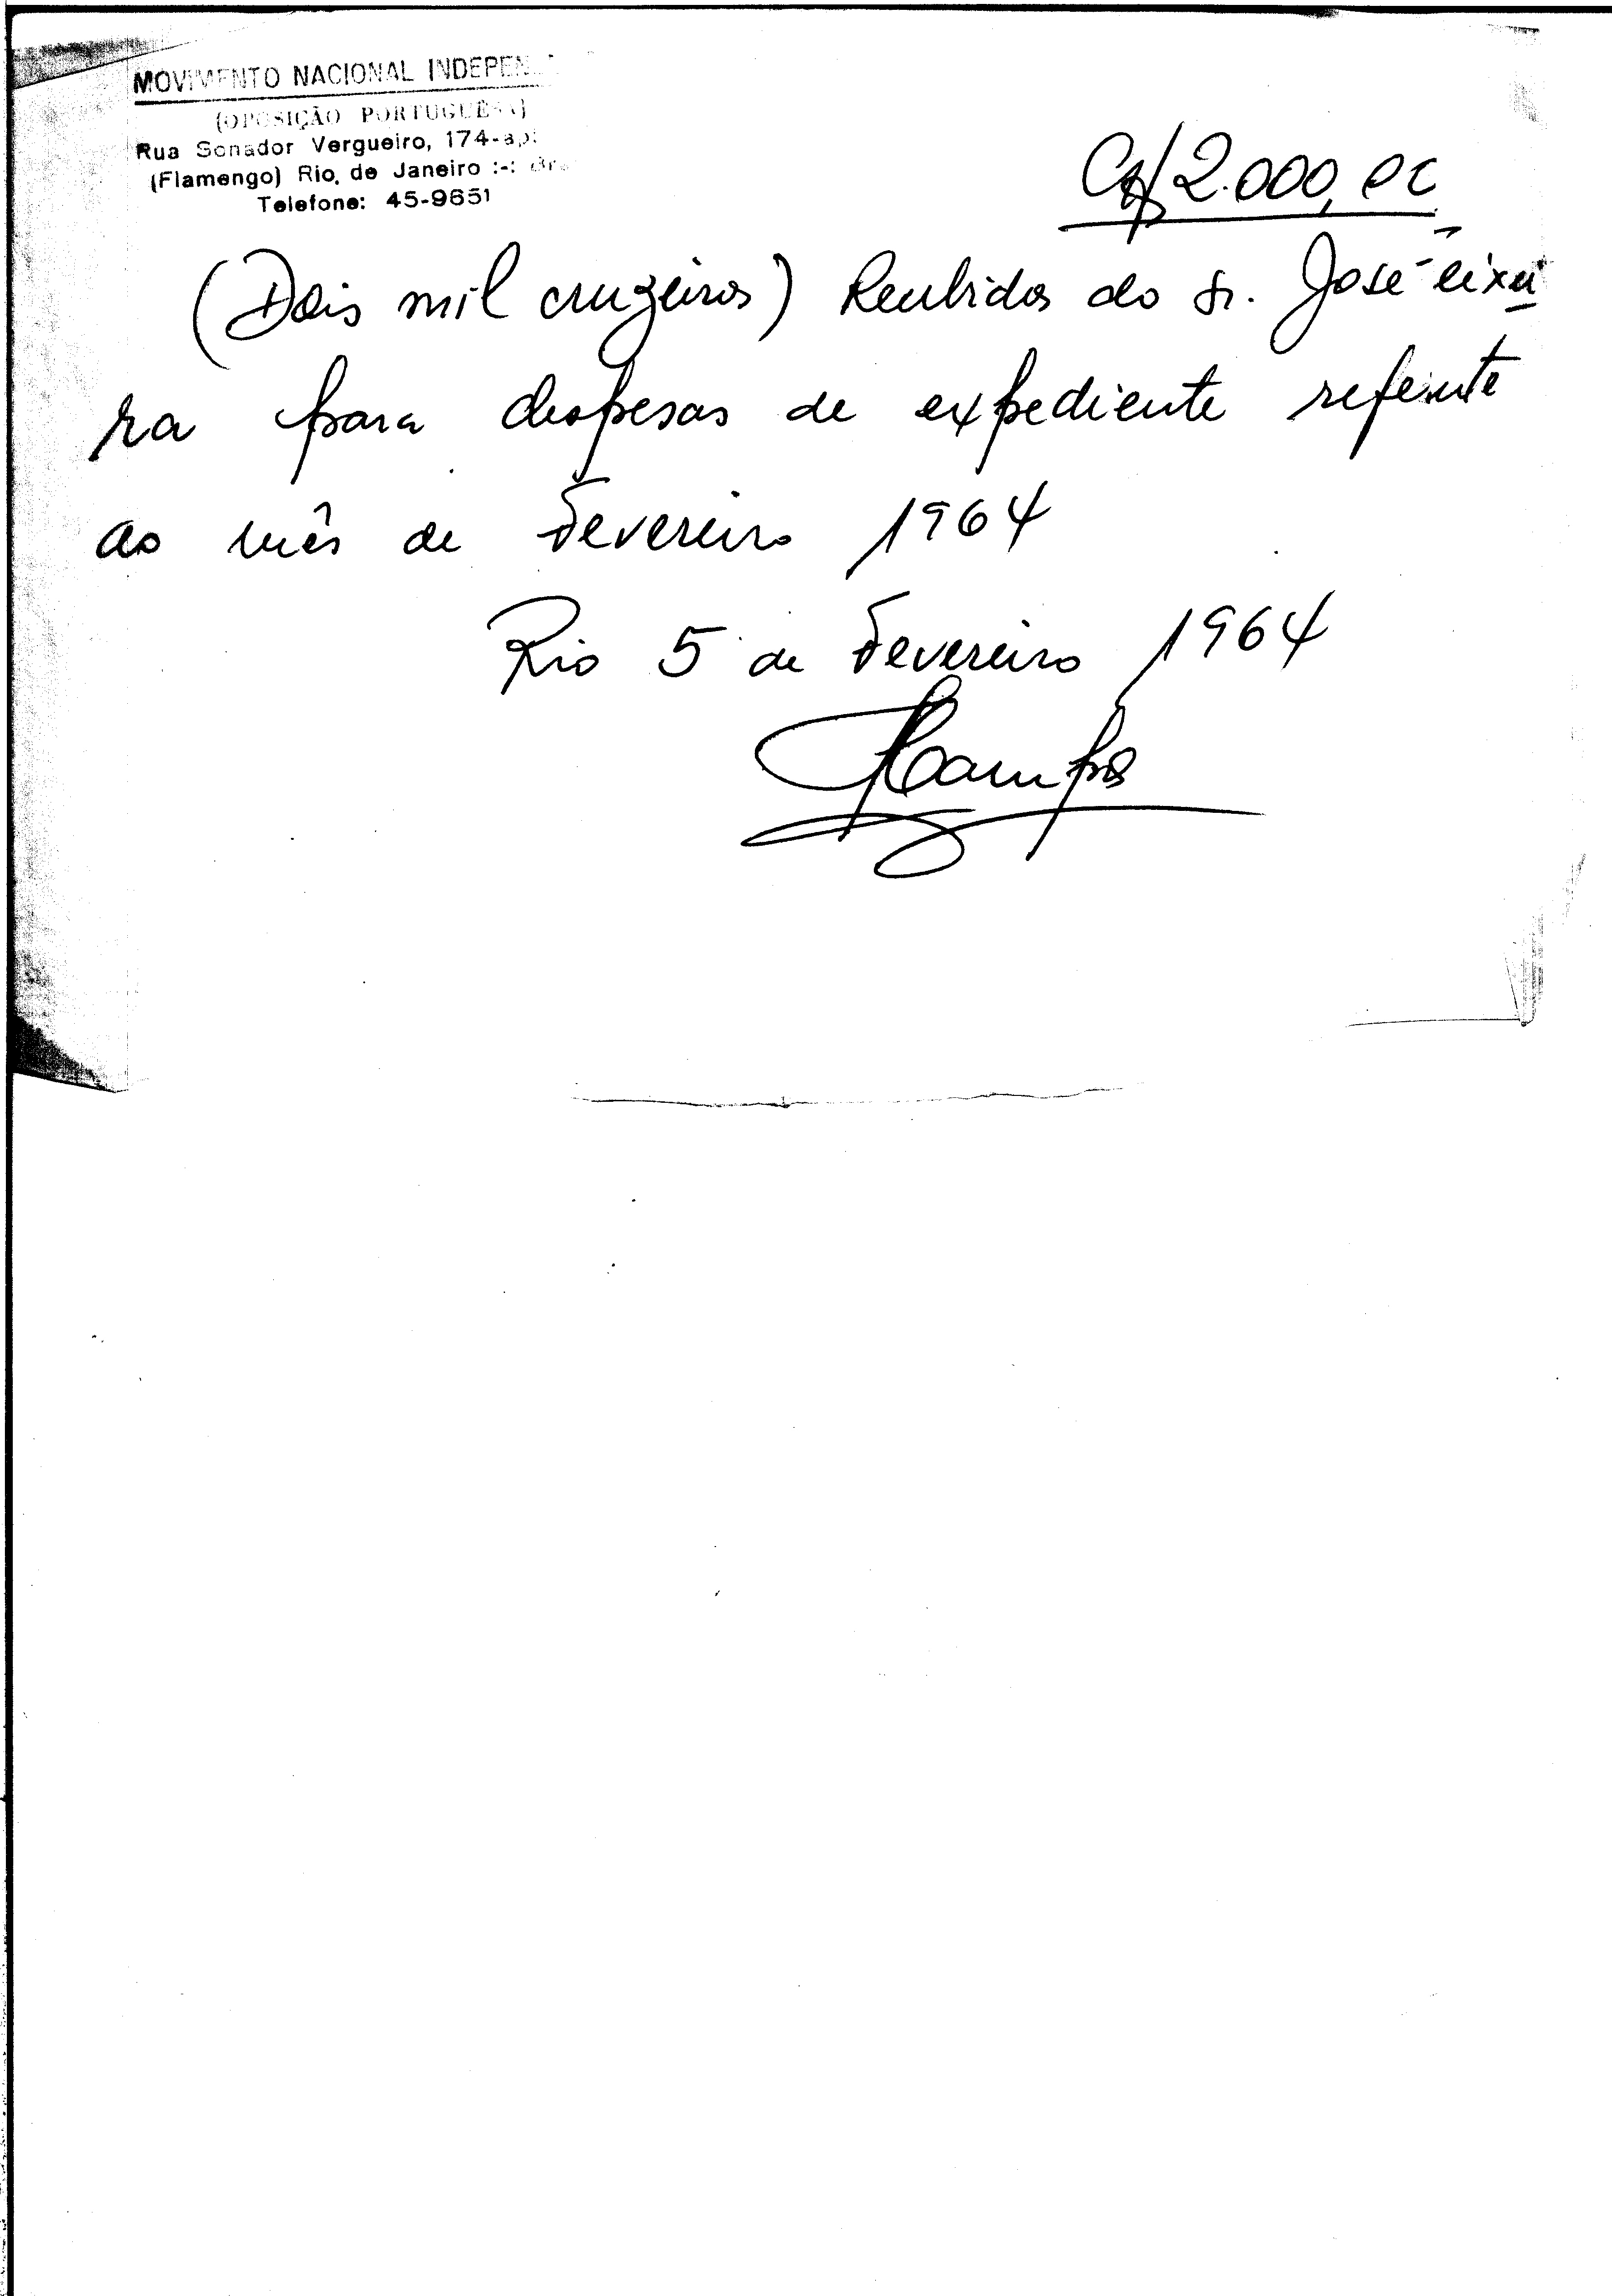 MOVIMENTO NACIONAL INDEPEN
(OPOSIÇÃO PORTUGUESA)
Rua Senador Vergueiro, 174-ap.
(Flamengo) Rio de Janeiro :-: Bra
Telefone: 45-9651
Cr$ 2.000,00
(Dois mil cruzeiros) Recebidos do Sr. José Teixei-
ra para despesas de expediente referente
ao mês de Fevereiro 1964
Rio 5 de Fevereiro 1964
Campos